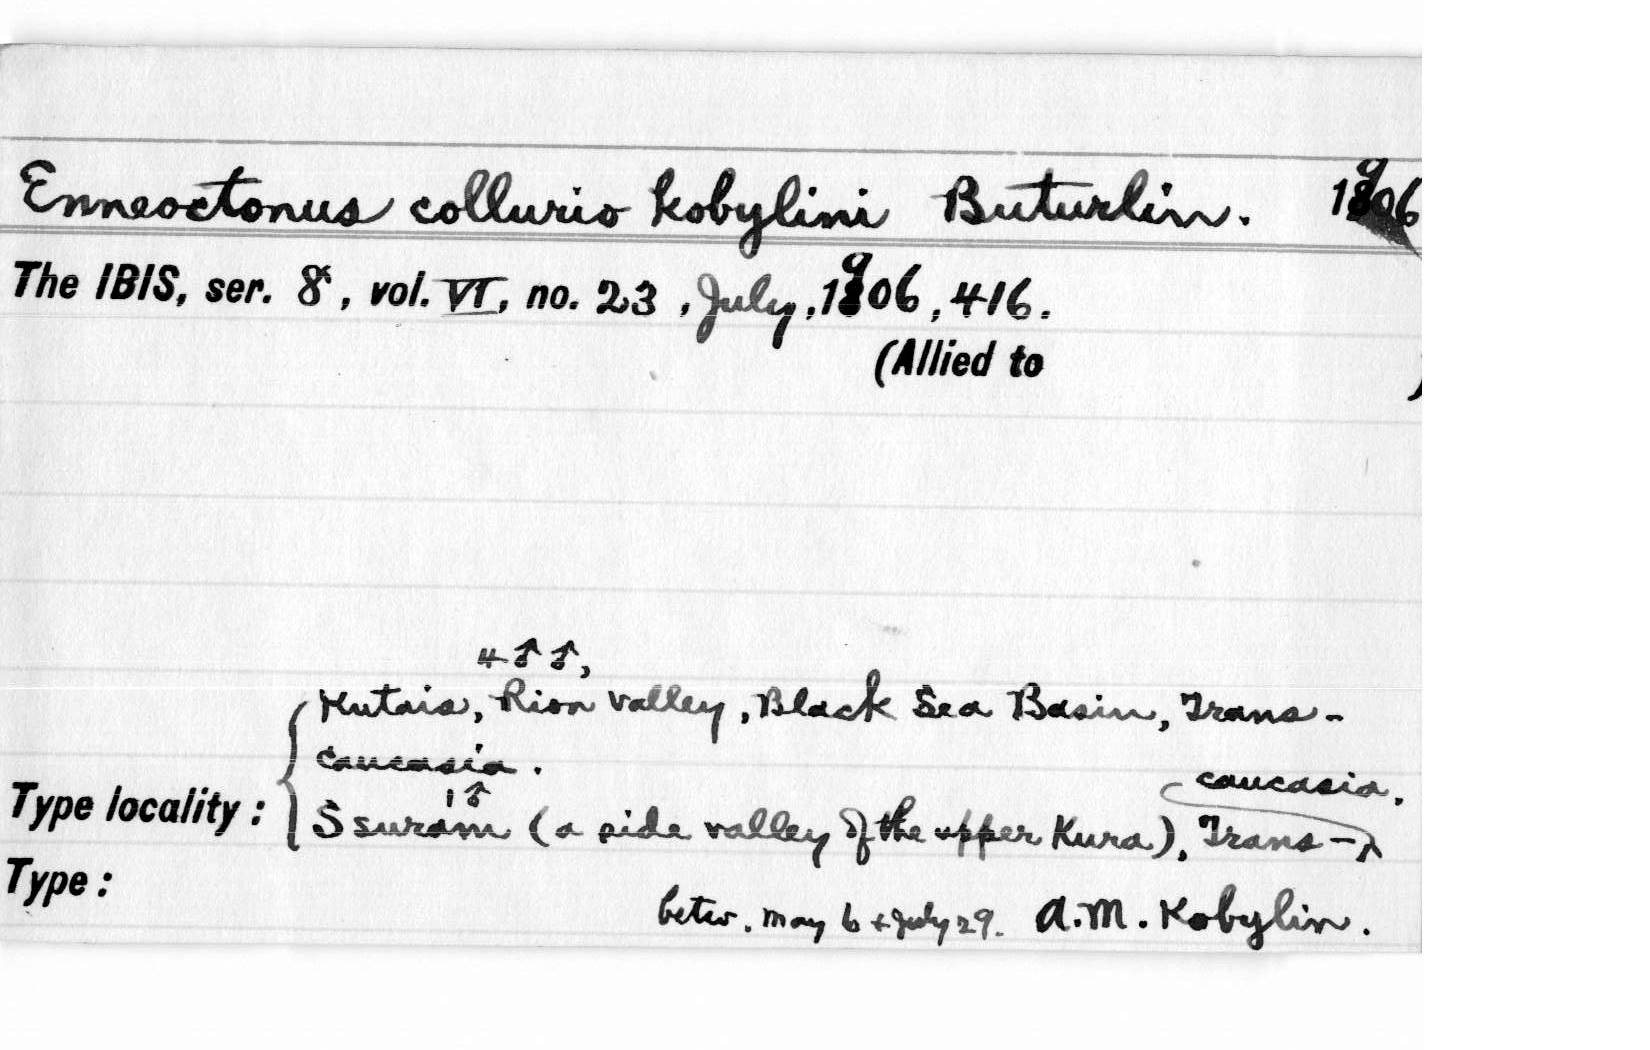 Enneoctonus collurio kobylini Buturlin. 1906
The IBIS, ser. 8, vol. VI, no. 23, July, 1906, 416.
(Allied to )
4 ♂♂,
Kutais, Rion valley, Black Sea Basin, Trans-
caucasia.
Type locality:
1♂
Ssuram (a side valley of the upper Kura), Trans-
caucasia.
Type:
betw. May 6 + July 29. A.M. Kobylin.